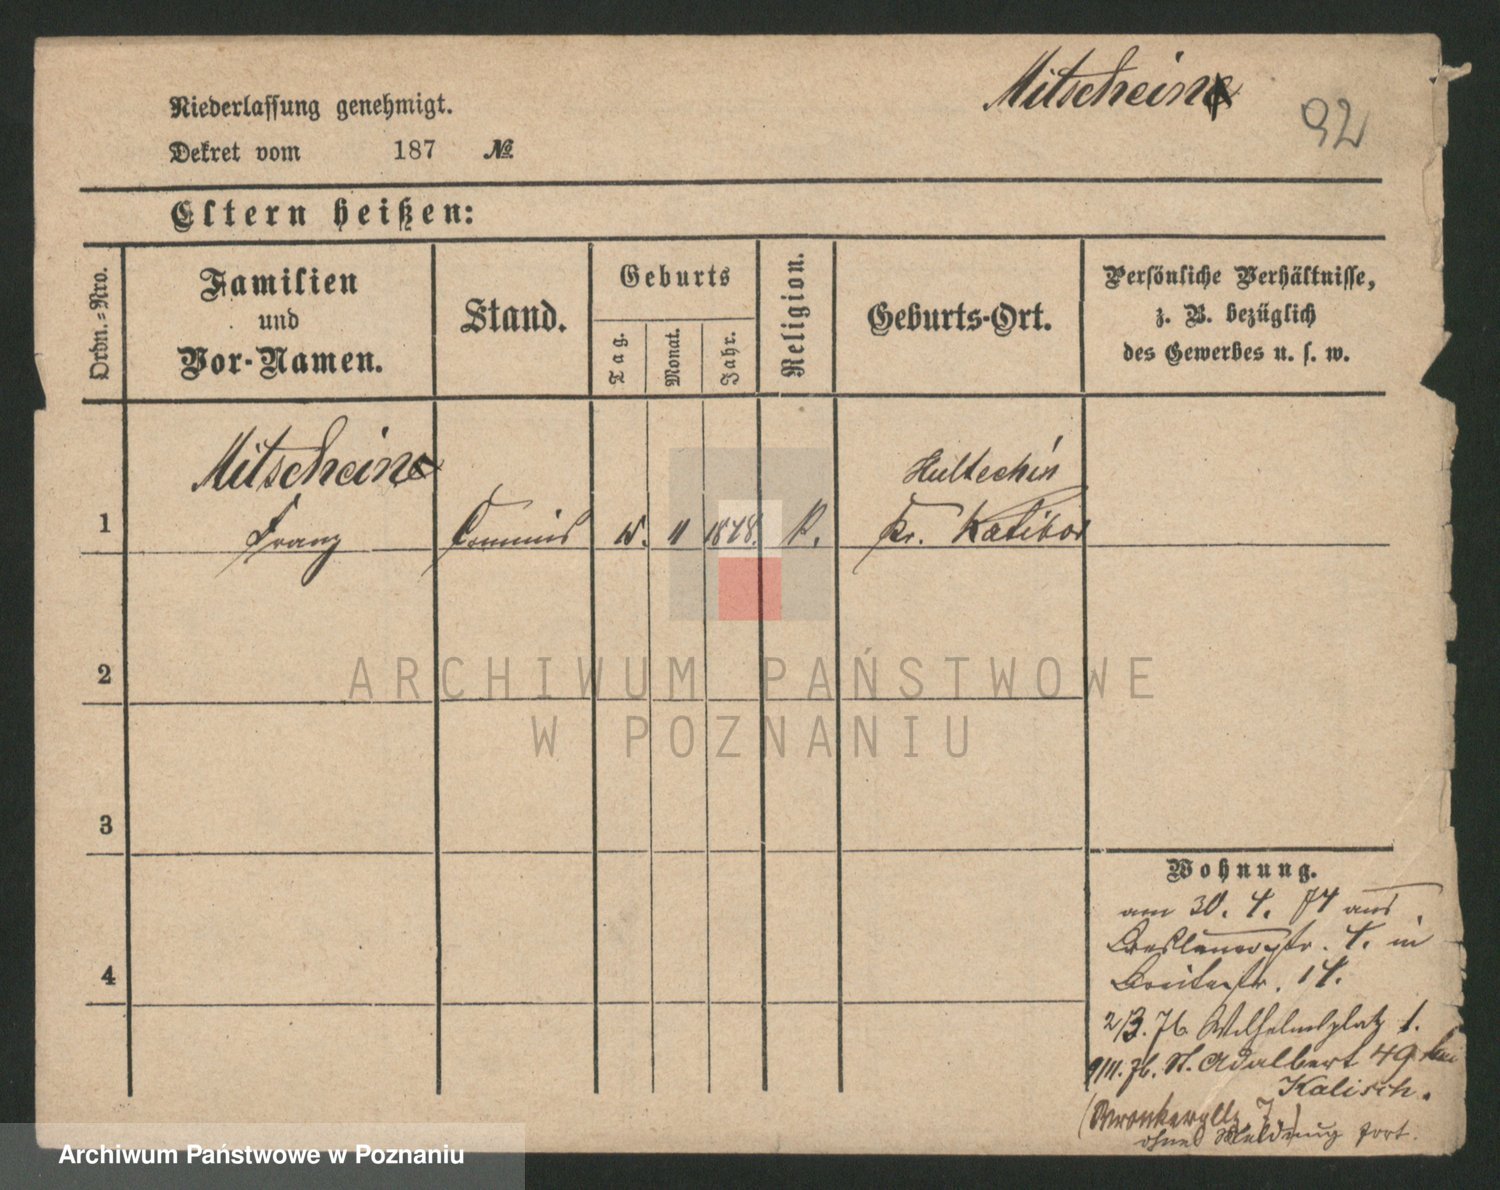 Mitschein
92
Niederlassung genehmigt.
Dekret vom 187 №
Eltern heißen:
Ordn.=Nro.
Familien
und
Vor-Namen.
Stand.
Geburts
Tag.
Monat.
Jahr.
Religion.
Geburts-Ort.
Persönliche Verhältnisse,
z. B. bezüglich
des Gewerbes u. s. w.
Mitschein
Hultschin
1 Franz Commis 11 K. Kr. Ratibor
2
3
4
Wohnung.
am 30. 4. 74 aus
Breslauerstr. 4. in
Breitestr. 14.
2/3. 76 Wilhelmsplatz 1.
St. Adalbert 49 bei
Kalisch.
(Wronkerstr. 7)
ohne Meldung fort.
ARCHIWUM PAŃSTWOWE
W POZNANIU
Archiwum Państwowe w Poznaniu